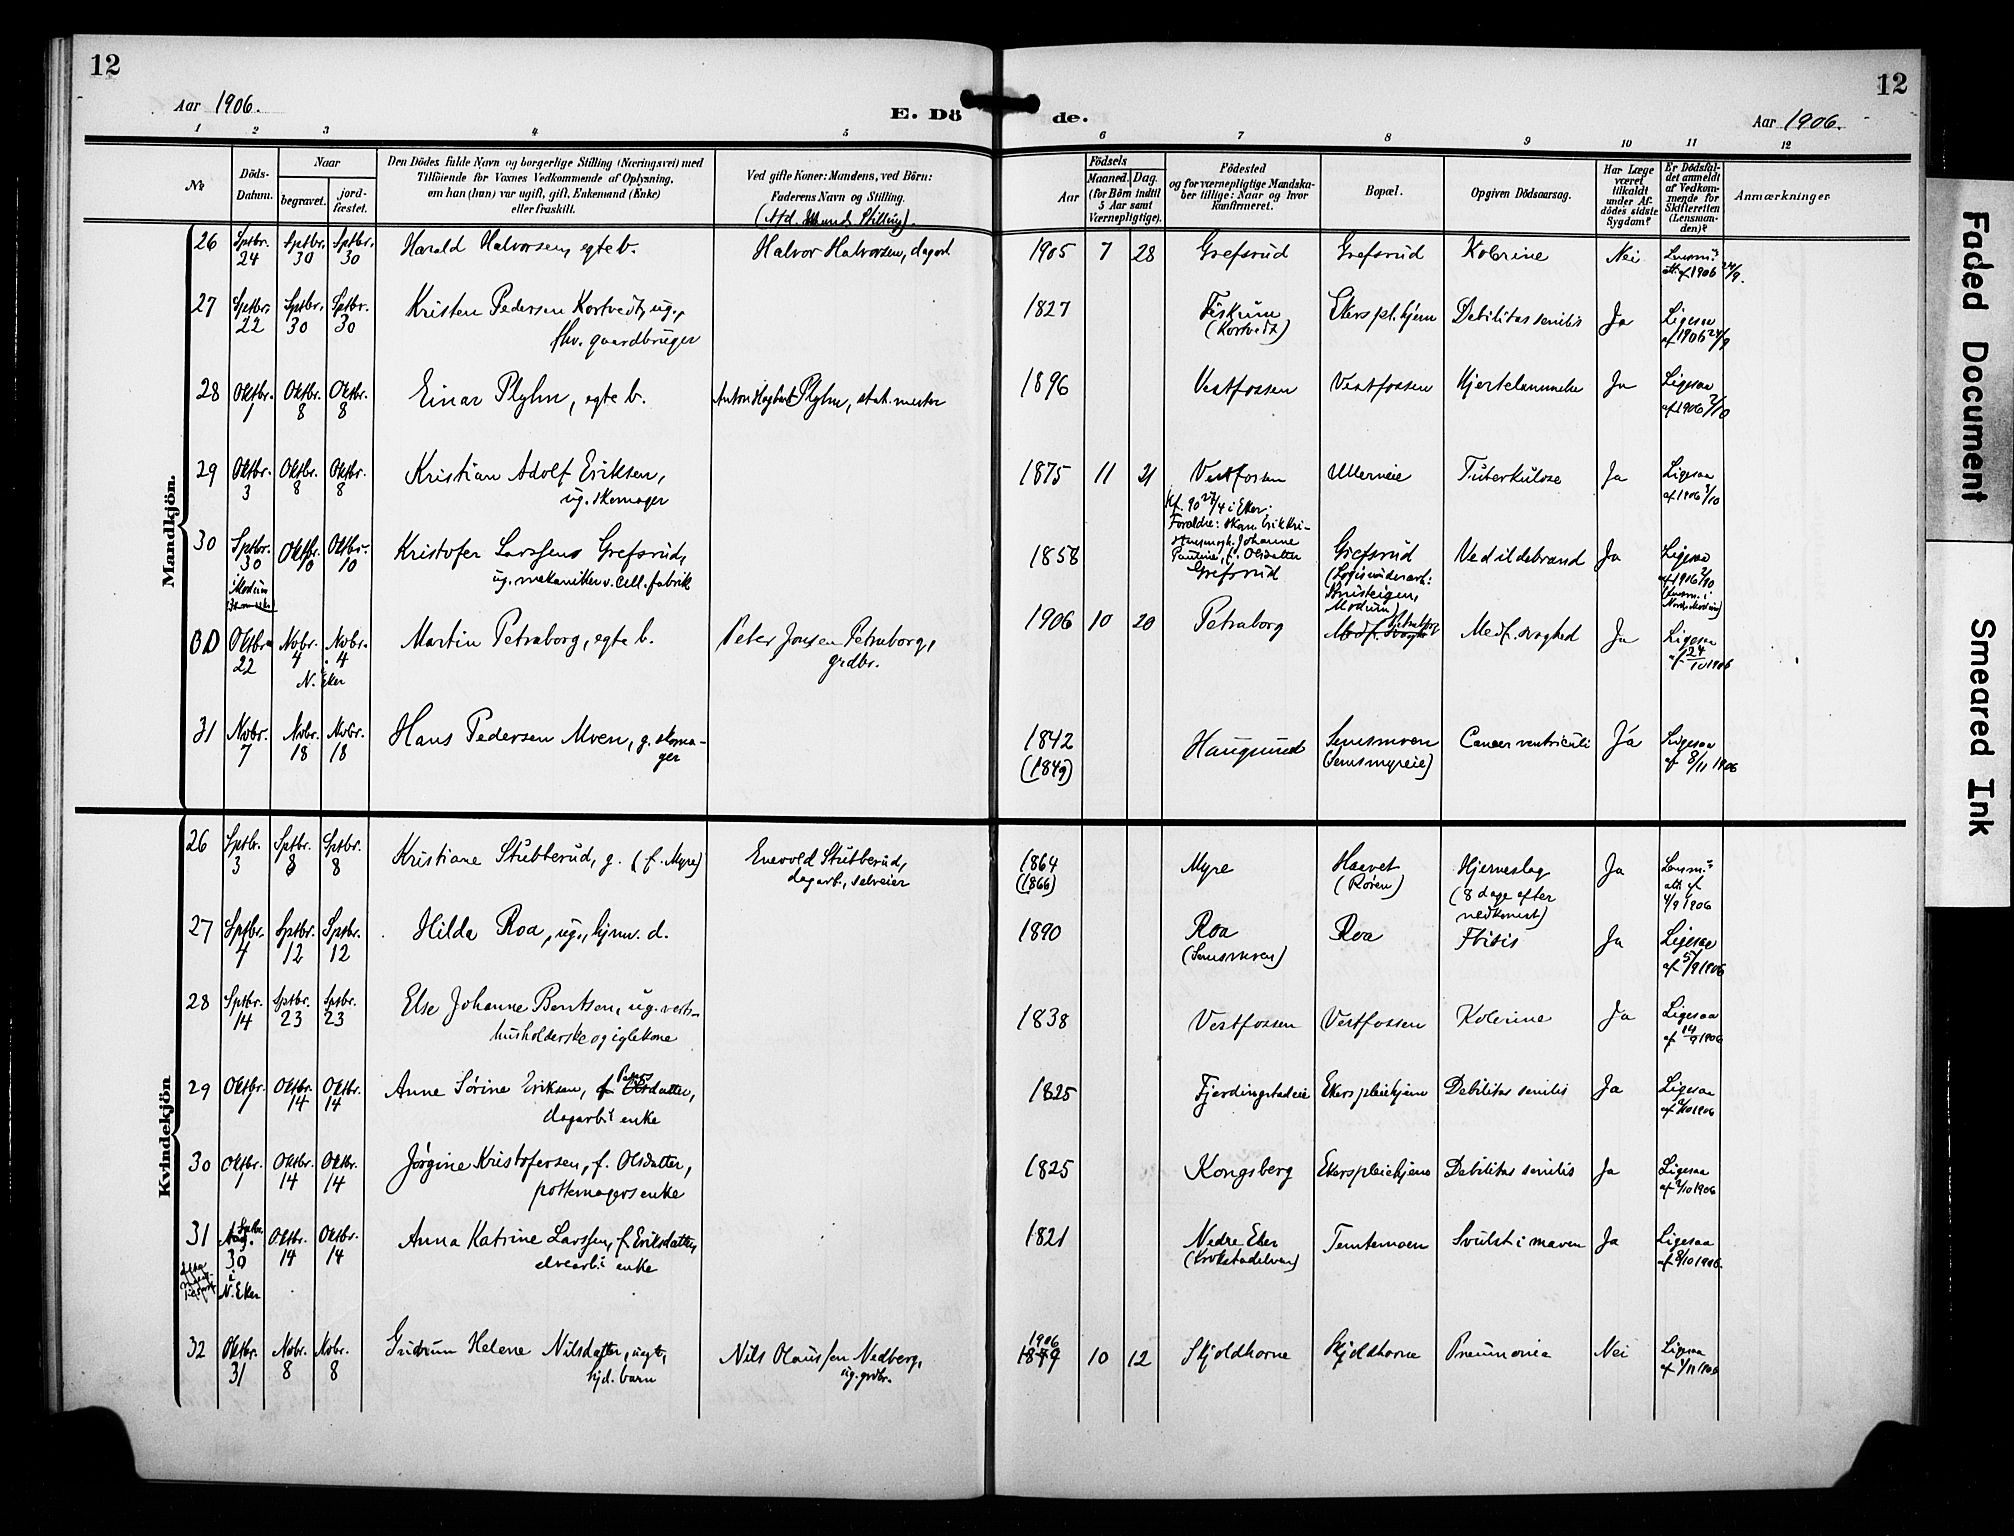 12
12
Aar 1906.
E. Dö de.
Aar 1906.
1 2 3 4 5 6 7 8 9 10 11 12
№
Döds-
Datum.
Naar
begravet.
jord-
fæstet.
Den Dödes fulde Navn og borgerlige Stilling (Næringsvei) med
Tilföiende for Voxnes Vedkommende af Oplysning,
om han (hun) var ugift, gift, Enkemand (Enke)
eller fraskilt.
Ved gifte Koner: Mandens, ved Börn:
Faderens Navn og Stilling.
Aar
Födsels
Maaned. Dag.
(for Börn indtil
5 Aar samt
Værnepligtige).
Födested
og for værnepligtige Mandska-
ber tillige: Naar og hvor
konfirmeret.
Bopæl.
Opgiven Dödsaarsag.
Har Læge
været
tilkaldt
under Af-
dödes sidste
Sygdom?
Er Dödsfal-
det anmeldt
af Vedkom-
mende for
Skifteretten
(Lensman-
den)?
Anmærkninger
Mandkjön.
26 Sptbr. 24 Sptbr. 30 Sptbr. 30 Harald Halvorsen, egte b. Halvor Halvorsen, dagarb. 1905 7 28 Grefsrud Grefsrud Kolerine Nei
af 1906 24/9.
27 Sptbr. 22 Sptbr. 30 Sptbr. 30 Kristen Pedersen Kortvedt, ug., 1827 Fiskum Ekers pl.hjem Debilitas senilis Ja Ligesaa
fhv. gaardbruger (Kortvedt) af 1906 24/9
28 Oktbr. 1 Oktbr. 8 Oktbr. 8 Einar Plyhn, egte b. Anton Hagbart Plyhn, stat.mester 1896 Vestfossen Vestfossen Hjertelammelse Ja Ligesaa
af 1906 2/10
29 Oktbr. 3 Oktbr. 8 Oktbr. 8 Kristian Adolf Eriksen, 1875 11 21 Vestfossen Ullerneie Tuberkulose Ja Ligesaa
ug. skomager af 1906 3/10
Kf. 90 27/4 i Eker.
Foraldre: skom. Erik Kri-
Pauline, f. Olsdatter
30 Sptbr. 30 Oktbr. 10 Oktbr. 10 Kristofer Larssens Grefsrud, 1858 Grefsrud Grefsrud Ved ildebrand Ja Ligesaa
i Modum
ug. mekaniker v. cell. fabrik
Modum)
BD Oktbr. 22 Novbr. 4 Novbr. 4 Martin Petraborg, egte b. Peter Jonsen Petraborg, 1906 10 20 Petraborg Petraborg Medf. svaghed Ja Ligesaa
N. Eker grdbr. af 24/10 1906
31 Novbr. 7 Novbr. 18 Novbr. 18 Hans Pedersen Moen, g. skoma- 1842 Haugsund Semsmoen Cancer ventriculi Ja Ligesaa
ger (1849) (Semsmyreie) af 8/11 1906
Kvindekjön
26 Sptbr. 3 Sptbr. 8 Sptbr. 8 Kristiane Stubberud, g. (f. Myre) Enevold Stubberud, 1864 Myre Haevet Hjerneslag Ja
dagarb., selveier (1866) (Røren) (8 dage efter
nedkomst) 4/9 1906
27 Sptbr. 4 Sptbr. 12 Sptbr. 12 Hilda Roa, ug., hjmv. d. 1890 Roa Roa Ftisis Ja Ligesaa
(Semsmoen) af 5/9 1906
28 Sptbr. 14 Sptbr. 23 Sptbr. 23 Else Johanne Berntsen, ug. verts- 1838 Vestfossen Vestfossen Kolerine Ja Ligesaa
husholderske og iglekone af 14/9 1906
29 Oktbr. 1 Oktbr. 14 Oktbr. 14 Anne Sørine Eriksen, f. Peders Olsdatter, 1825 Fjerdingstadeie Ekers pleiehjem Debilitas senilis Ja Ligesaa
dagarb.s enke af 2/10 1906
30 Oktbr. 7 Oktbr. 14 Oktbr. 14 Jørgine Kristofersen, f. Olsdatter, 1825 Kongsberg Ekers pleiehjem Debilitas senilis Ja Ligesaa
pottemagers enke
31 Sptbr. 30 Oktbr. 14 Oktbr. 14 Anna Katrine Larssen, f. Eriksdatter, 1821 Nedre Eker Temtemoen Svulst i maven Ja Ligesaa
i elvearb.s enke (Krokstadelven) af 8/10 1906.
N. Eker
32 Oktbr. 31 Novbr. 8 Novbr. 8 Gudrun Helene Nilsdatter, uegte, Nils Olaussen Nedberg, 1906 1879 10 12 Skjoldhorne Skjoldhorne Pneumonia Nei Ligesaa
hjd. barn ug. grdbr. af 1/11 1906
Faded Document
Smeared Ink